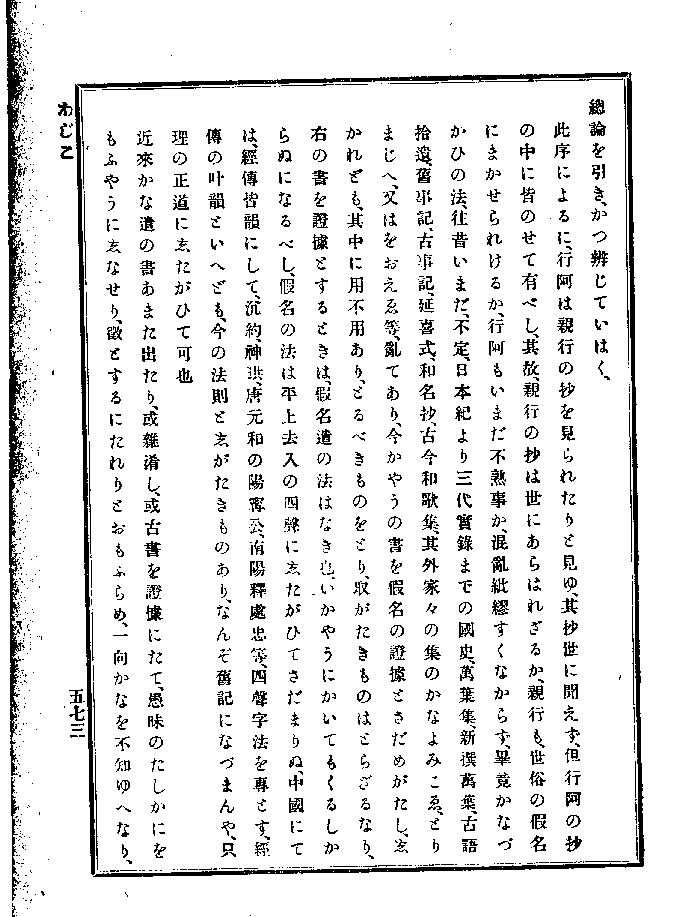 總論を引き、かつ辨じていはく、
此序によるに、行阿は親行の抄を見られたりと見ゆ、其抄世に聞えず、但行阿の抄
の中に皆のせて有べし、其故、親行の抄は世にあらはれざるか、親行も、世俗の假名
にまかせられけるか、行阿もいまだ不熟事か、混亂紕繆すくなからず、畢竟かなづ
かひの法、往昔いまだ、不定、日本紀より三代實錄までの國史、萬葉集、新撰萬葉、古語
拾遺、舊事記、古事記、延喜式、和名抄、古今和歌集、其外家々の集のかなよみこゑ、とり
まじへ、又はをおえゑ等、亂てあり、今かやうの書を假名の證據とさだめがたし、志
かれども、其中に用不用あり、とるべきものをとり、取がたきものはとらざるなり、
右の書を證據とするときは、假名遣の法はなき也、いかやうにかいてもくるしか
らぬになるべし、假名の法は平上去入の四聲に志たがひてさだまりぬ、中國にて
は、經傳皆韻にして、沉約、神珙、唐元和の陽寗公、南陽釋處忠等、四聲字法を專とす、經
傳の叶韻といへども、今の法則と志がたきものあり、なんぞ舊記になづまんや、只
理の正道に志たがひて可也
近來かな遣の書あまた出たり、或雜淆し、或古書を證據にたて、愚昧のたしかにを
もふやうに志なせり、徵とするにたれりとおもふらめ、一向かなを不知ゆへなり、
わじと
五七三